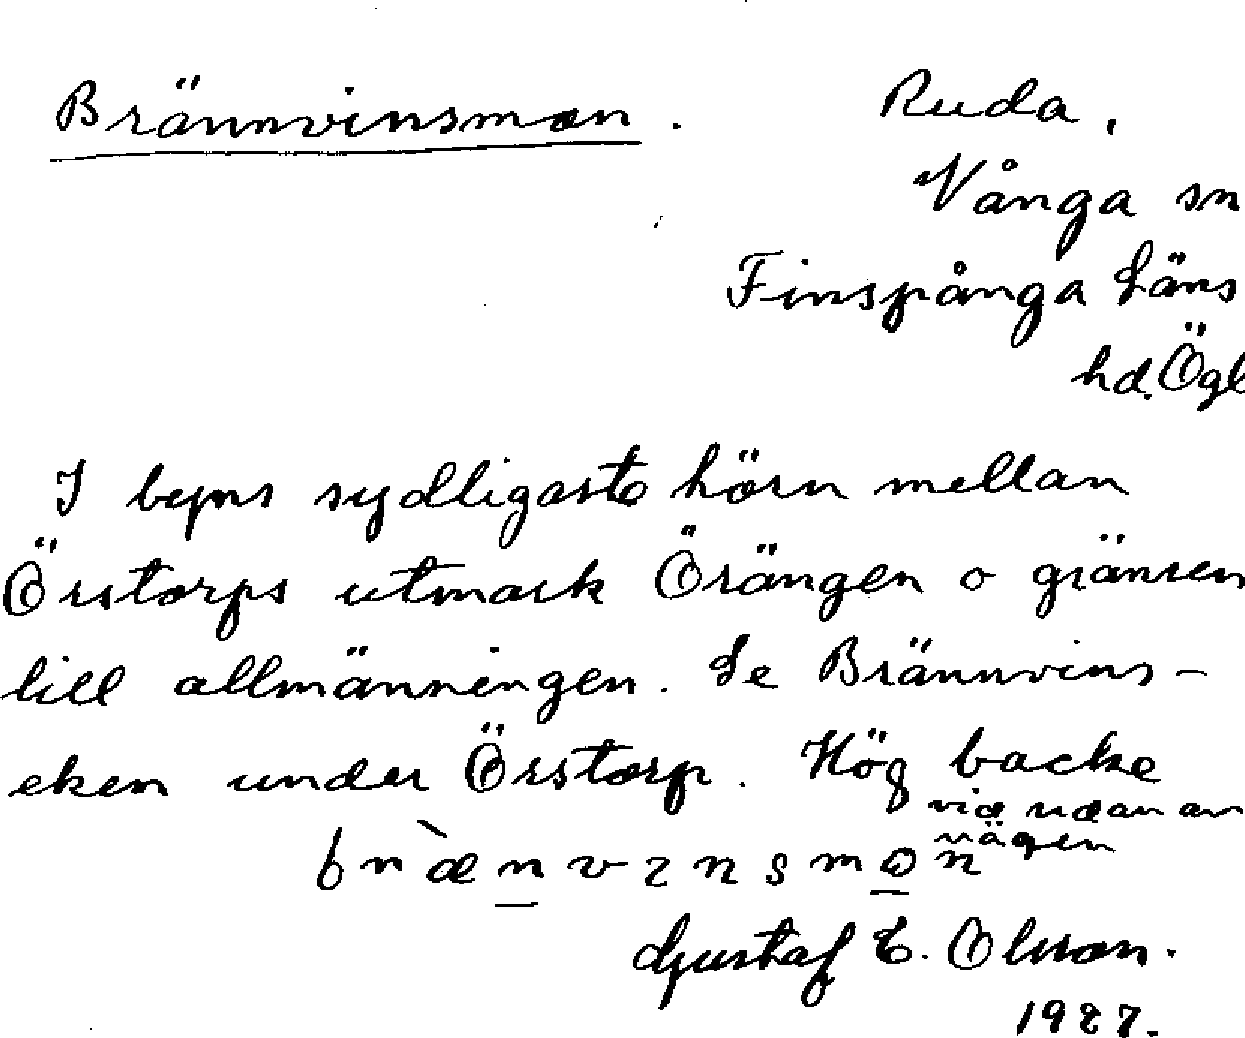 Brännvinsmon.
Ruda,
Vånga sn
Finspånga Läns
hd. Ögl
I byns sydligaste hörn mellan
Örstorps utmark Örängen o gränsen
till allmänningen. Se Brännvins-
eken under Örstorp. Hög backe
vid sidan av
vägen
Gustaf E. Olsson.
1927.